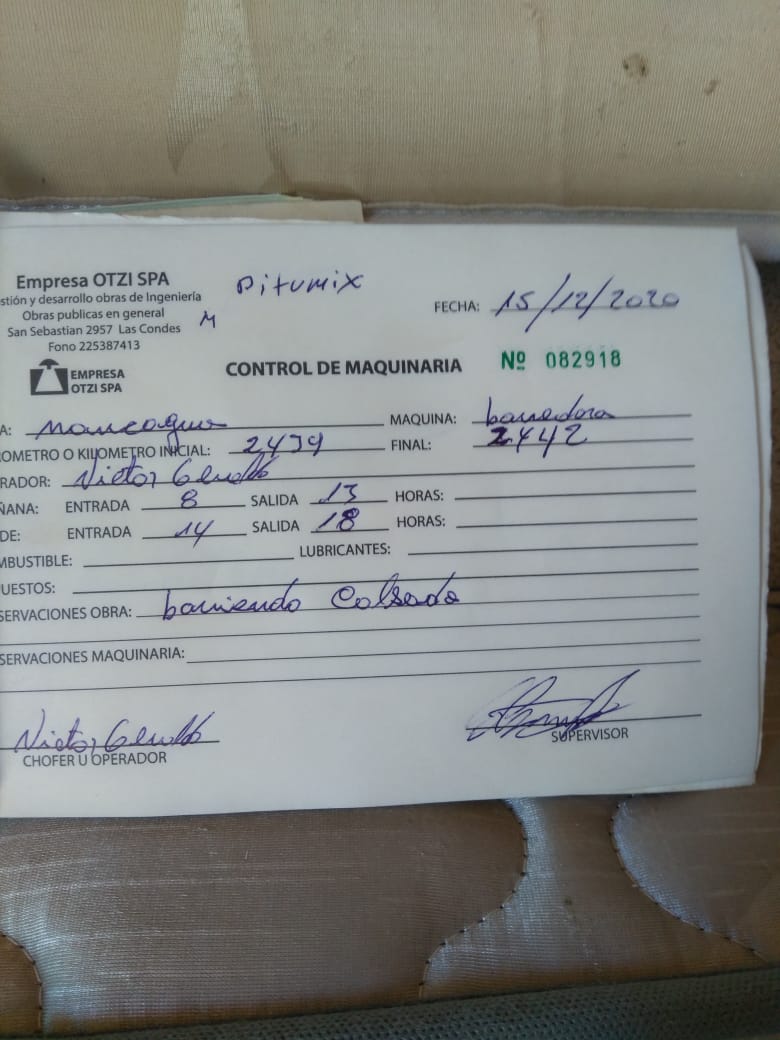 Empresa OTZI SPA
Bitumix
stión y desarrollo obras de Ingeniería
Obras publicas en general
M
San Sebastian 2957 Las Condes
Fono 225387413
FECHA: 15/12/2020
EMPRESA
OTZI SPA
CONTROL DE MAQUINARIA
Nº 082918
A: MAQUINA: barredora
OMETRO O KILOMETRO INICIAL: 2439 FINAL: 2442
RADOR: Victor Geraldo
ÑANA: ENTRADA 8 SALIDA 13 HORAS:
DE: ENTRADA 14 SALIDA 18 HORAS:
MBUSTIBLE: LUBRICANTES:
UESTOS:
SERVACIONES OBRA: barriendo Calsada
SERVACIONES MAQUINARIA:
Victor Geraldo
CHOFER U OPERADOR
SUPERVISOR